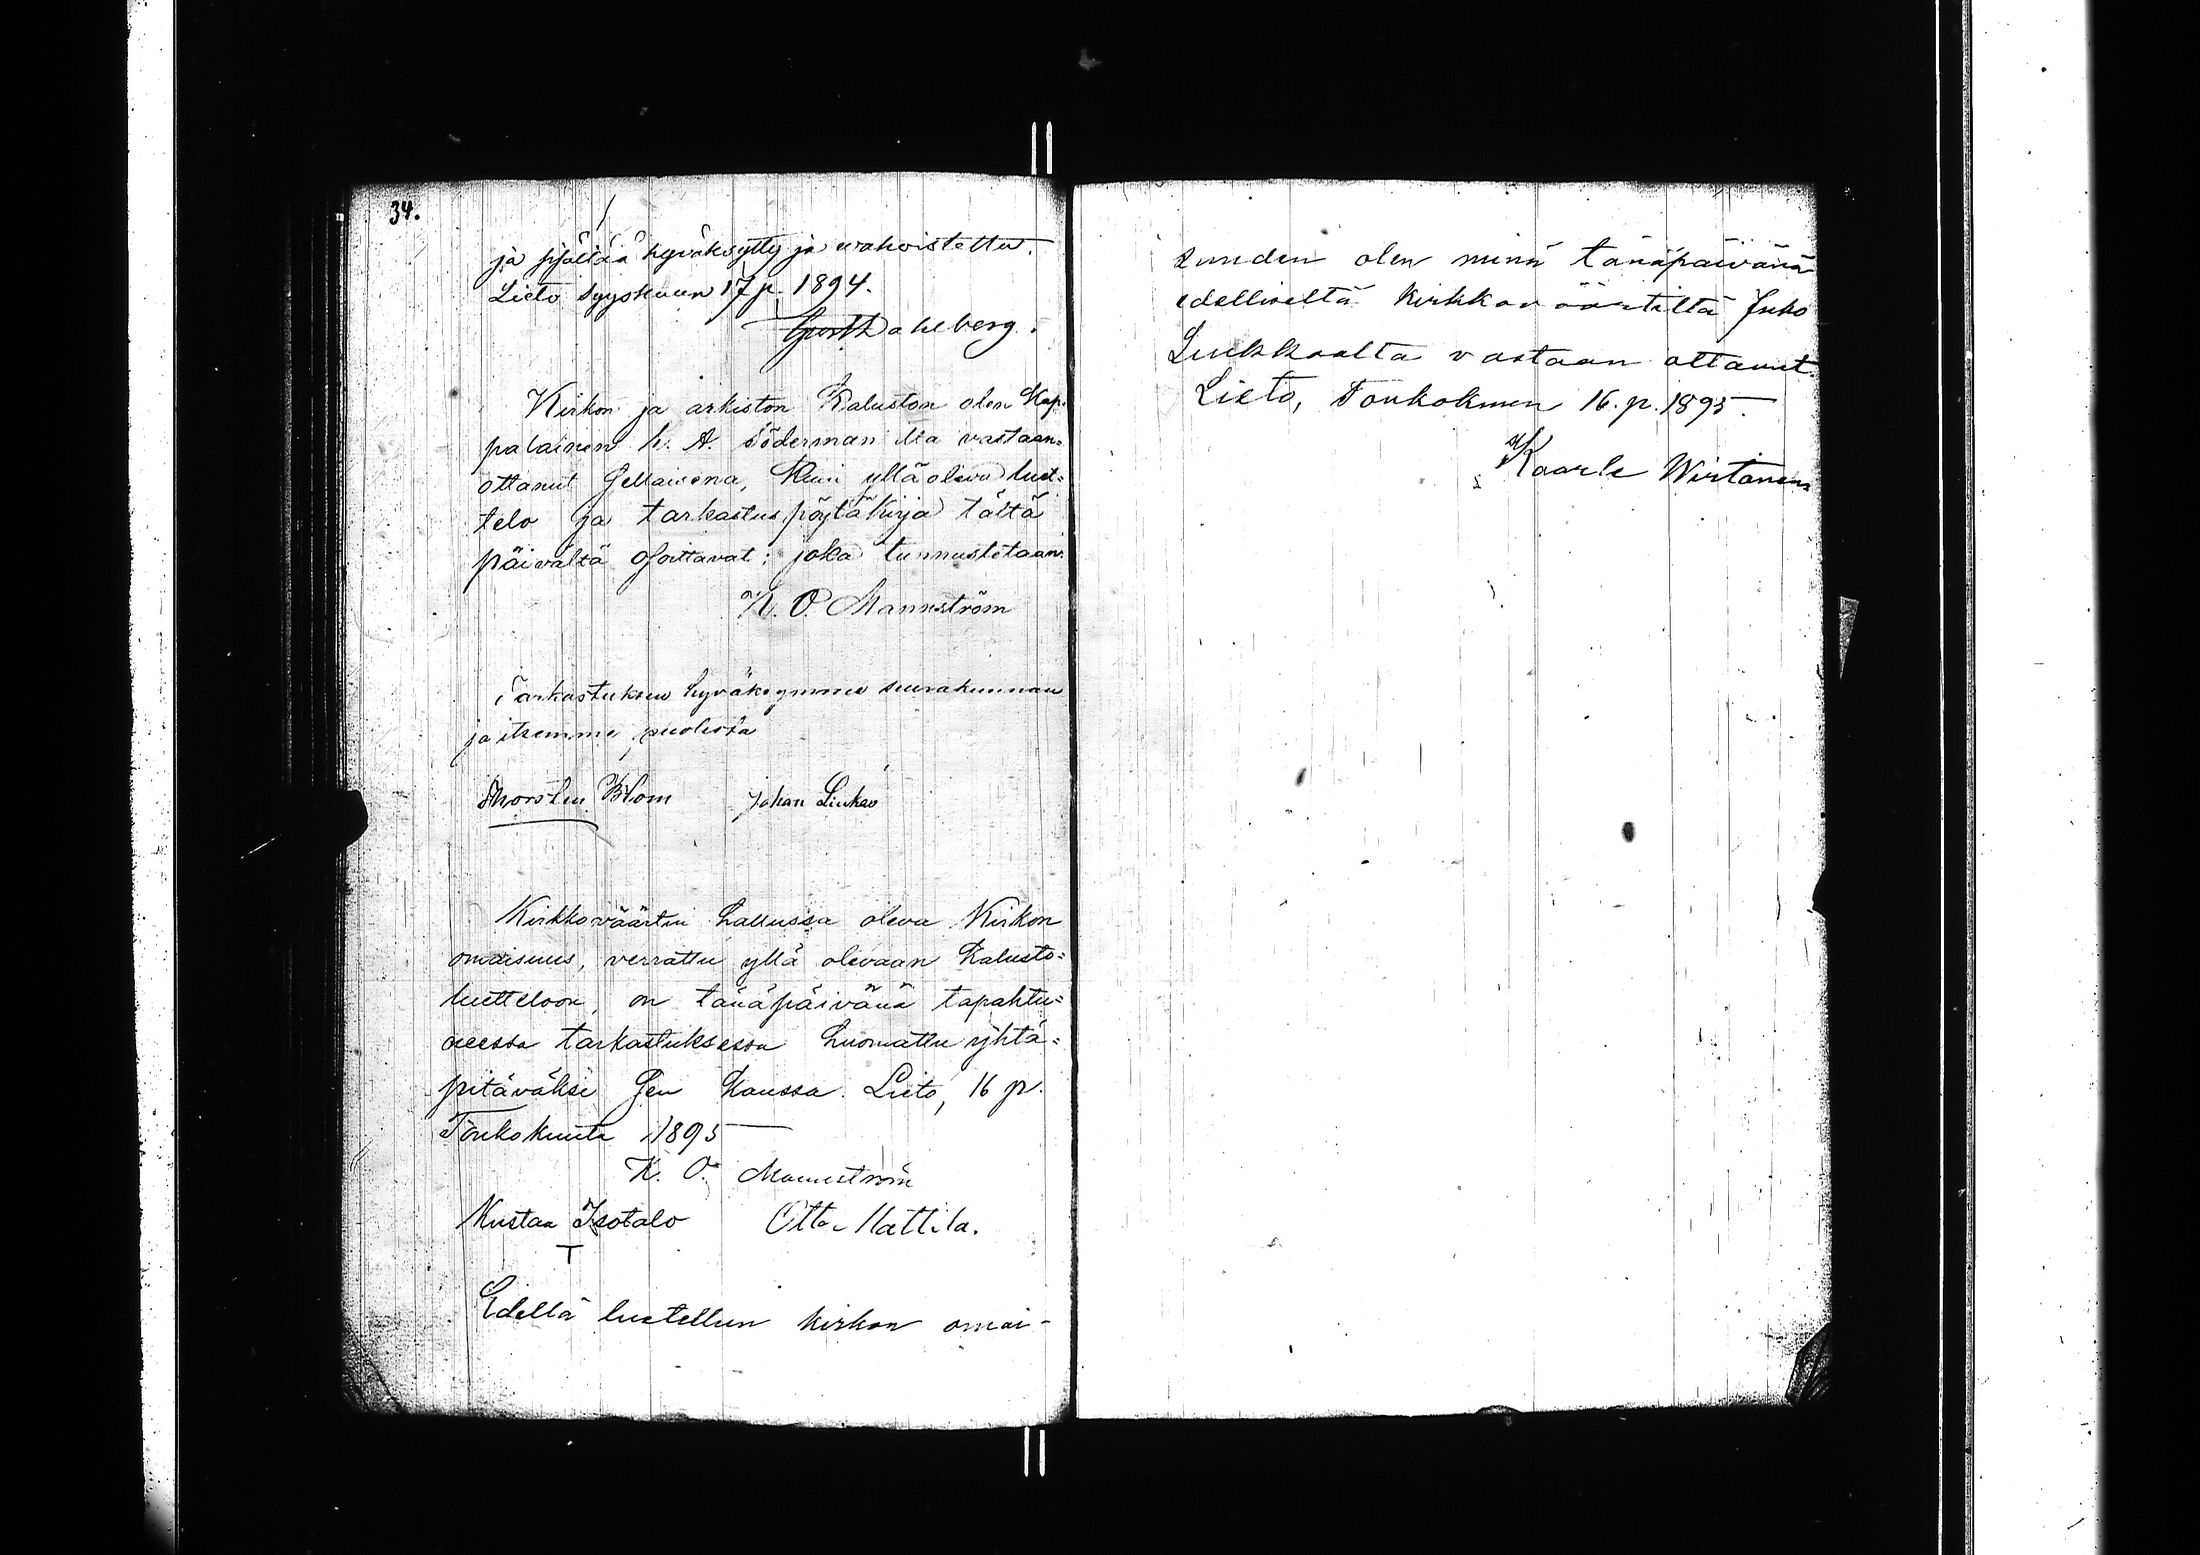 34.
ja hyväksytty ja wahvistettu.
Lieto Syyskuun 17 p. 1894.
Gust Dahlberg.
Kirkon ja arkiston Kaluston olen Kap=
palainen h. A. Södermanilla vastaan=
ottanut sellaisena, Kuin ylläoleva luet=
telo ja tarkastus pöytäkirja tältä
päivältä osoittavat; joka tunnustetaan.
K. O. Mannström
Tarkastuksen hyväksymme seurakunnan
ja itsemme puolesta
Thorsten Blom Johan Liukas
Kirkkoväärtin hallussa oleva Kirkon
omaisuus, verrattu yllä olevaan Kalusto=
luetteloon, on tänäpäivänä tapahtu=
neessa tarkastuksessa huomattu yhtä=
pitäväksi sen kanssa. Lieto, 16 p.
Toukokuuta 1895
K. O. Mannström
Kustaa Isotalo Otto Mattila.
Edellä luetellun kirkon omai-
suuden olen minä tänäpäivänä
edelliseltä kirkkoväärtiltä Juho
Liukkaalta vastaan ottanut.
Lieto, Toukokuun 16. p. 1895.
Kaarle Wirtanen